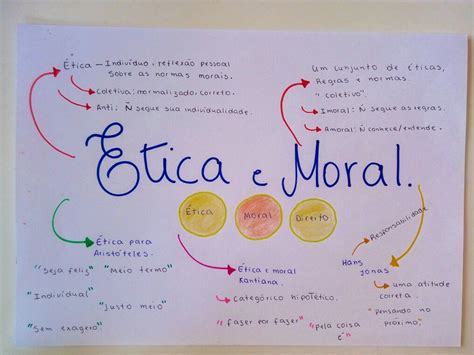 Ética — Indivíduo, reflexão pessoal
sobre as normas morais.
Coletiva: normalizado, correto.
Anti: Ñ segue sua individualidade.
Um conjunto de éticas,
Regras e normas.
"coletivo".
Imoral: Ñ segue as regras.
Amoral: Ñ conhece/entende.
Ética e Moral.
Ética
Moral
Direito
Ética para
Aristóteles.
"Seja feliz"
"Meio termo"
"Individual"
"justo meio"
"Sem exagero"
Ética e moral
Kantiana.
Categórico hipotético.
"fazer por fazer"
"pela coisa
é"
Responsabilidade
Hans
Jonas
uma atitude
correta.
"pensando no
próximo"